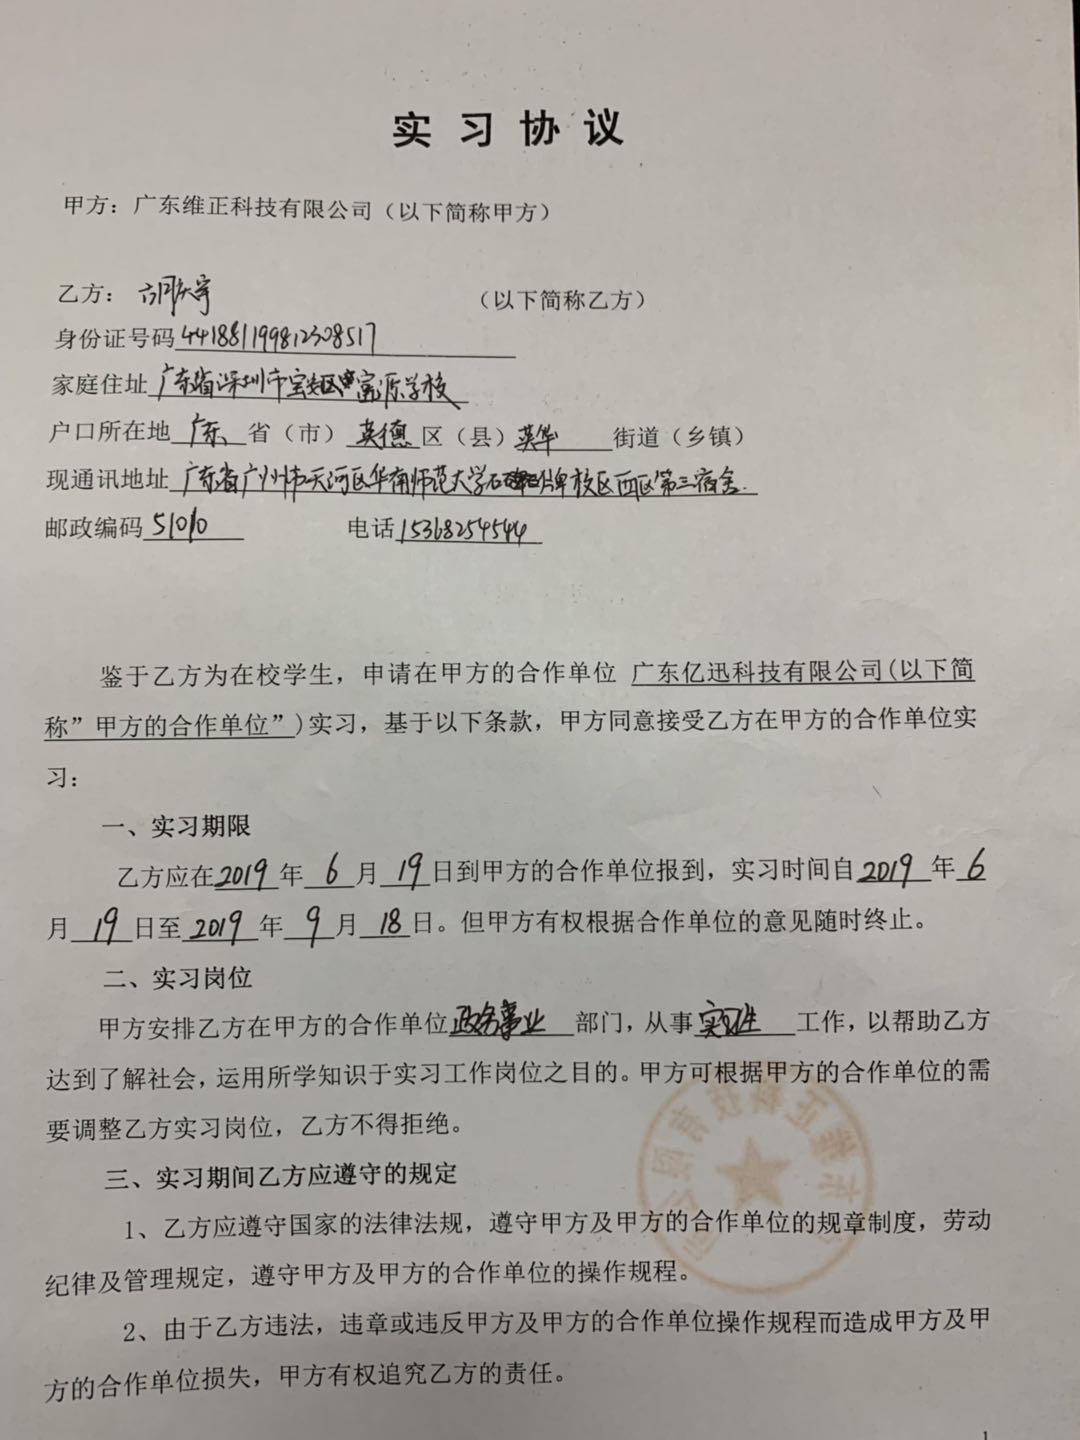 实习协议
甲方：广东维正科技有限公司（以下简称甲方）
乙方：（以下简称乙方）
身份证号码441881199812308517
家庭住址广东省深圳市宝安区富源学校
户口所在地 广东 省（市） 英德 区（县）英华 街道（乡镇）
现通讯地址 广东省广州市天河区华南师范大学石牌校区西区第三宿舍.
邮政编码 51010 电话 15368254544
鉴于乙方为在校学生，申请在甲方的合作单位 广东亿迅科技有限公司(以下简
称”甲方的合作单位”)实习，基于以下条款，甲方同意接受乙方在甲方的合作单位实
习：
一、实习期限
乙方应在2019年 6 月 19日到甲方的合作单位报到，实习时间自2019年 6
月 19 日至 2019 年 9 月 18 日。但甲方有权根据合作单位的意见随时终止。
二、实习岗位
甲方安排乙方在甲方的合作单位政务事业 部门，从事 实习生 工作，以帮助乙方
达到了解社会，运用所学知识于实习工作岗位之目的。甲方可根据甲方的合作单位的需
要调整乙方实习岗位，乙方不得拒绝。
三、实习期间乙方应遵守的规定
1、乙方应遵守国家的法律法规，遵守甲方及甲方的合作单位的规章制度，劳动
纪律及管理规定，遵守甲方及甲方的合作单位的操作规程。
2、由于乙方违法，违章或违反甲方及甲方的合作单位操作规程而造成甲方及甲
方的合作单位损失，甲方有权追究乙方的责任。
1